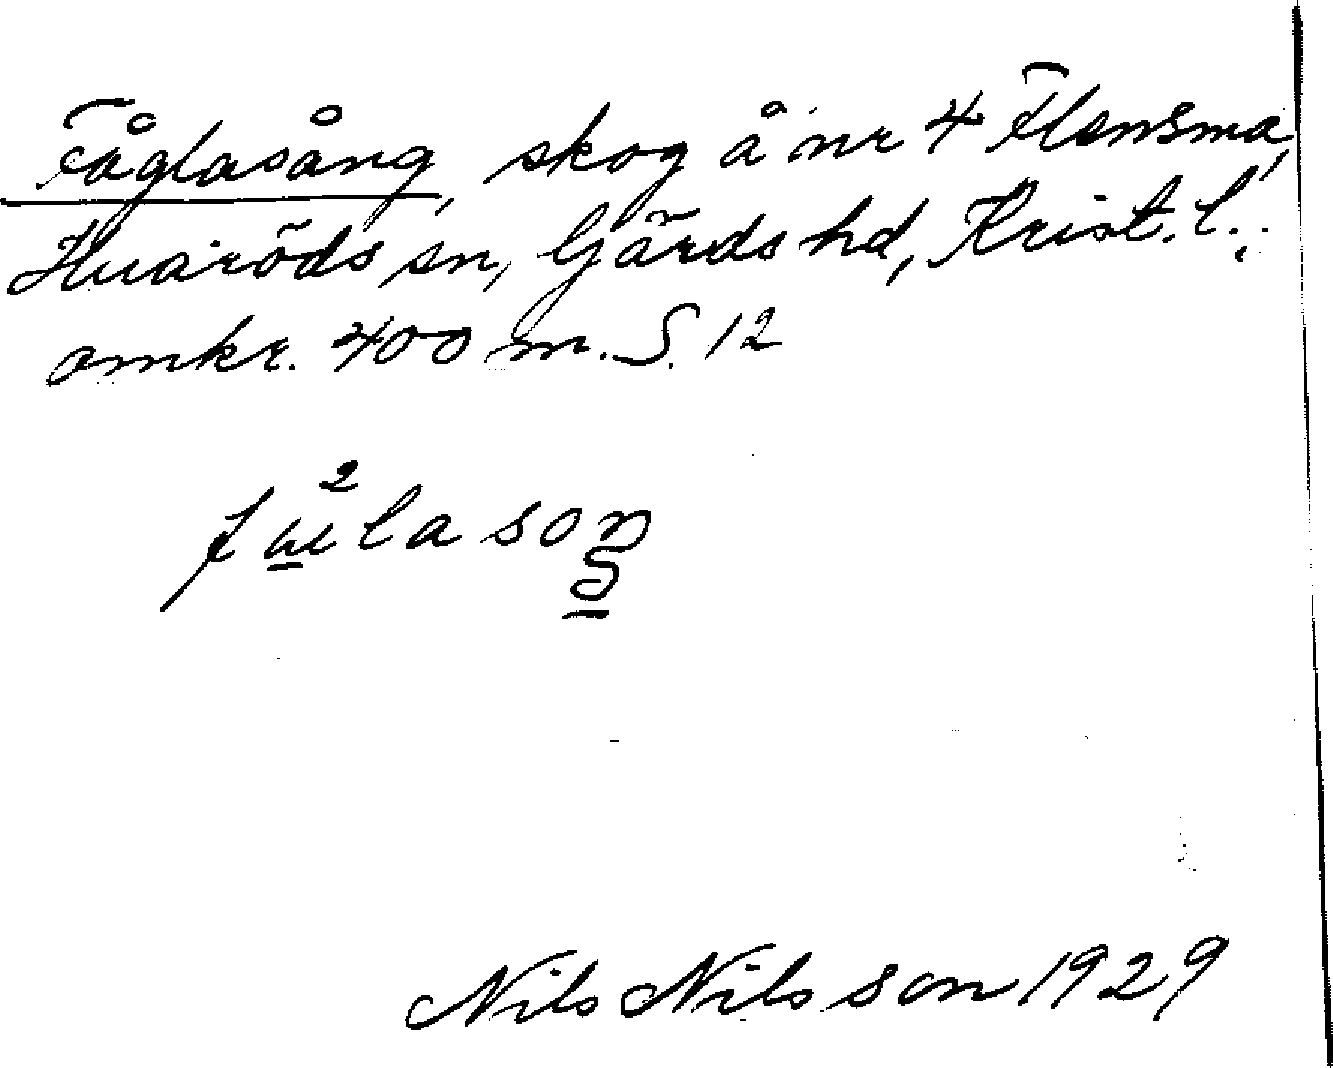 Fåglasång, skog å nr 4 Flensma,
Huaröds sn, Gärds hd, Krist. l.;
omkr. 400 m. S. 12
Nils Nilsson 1929